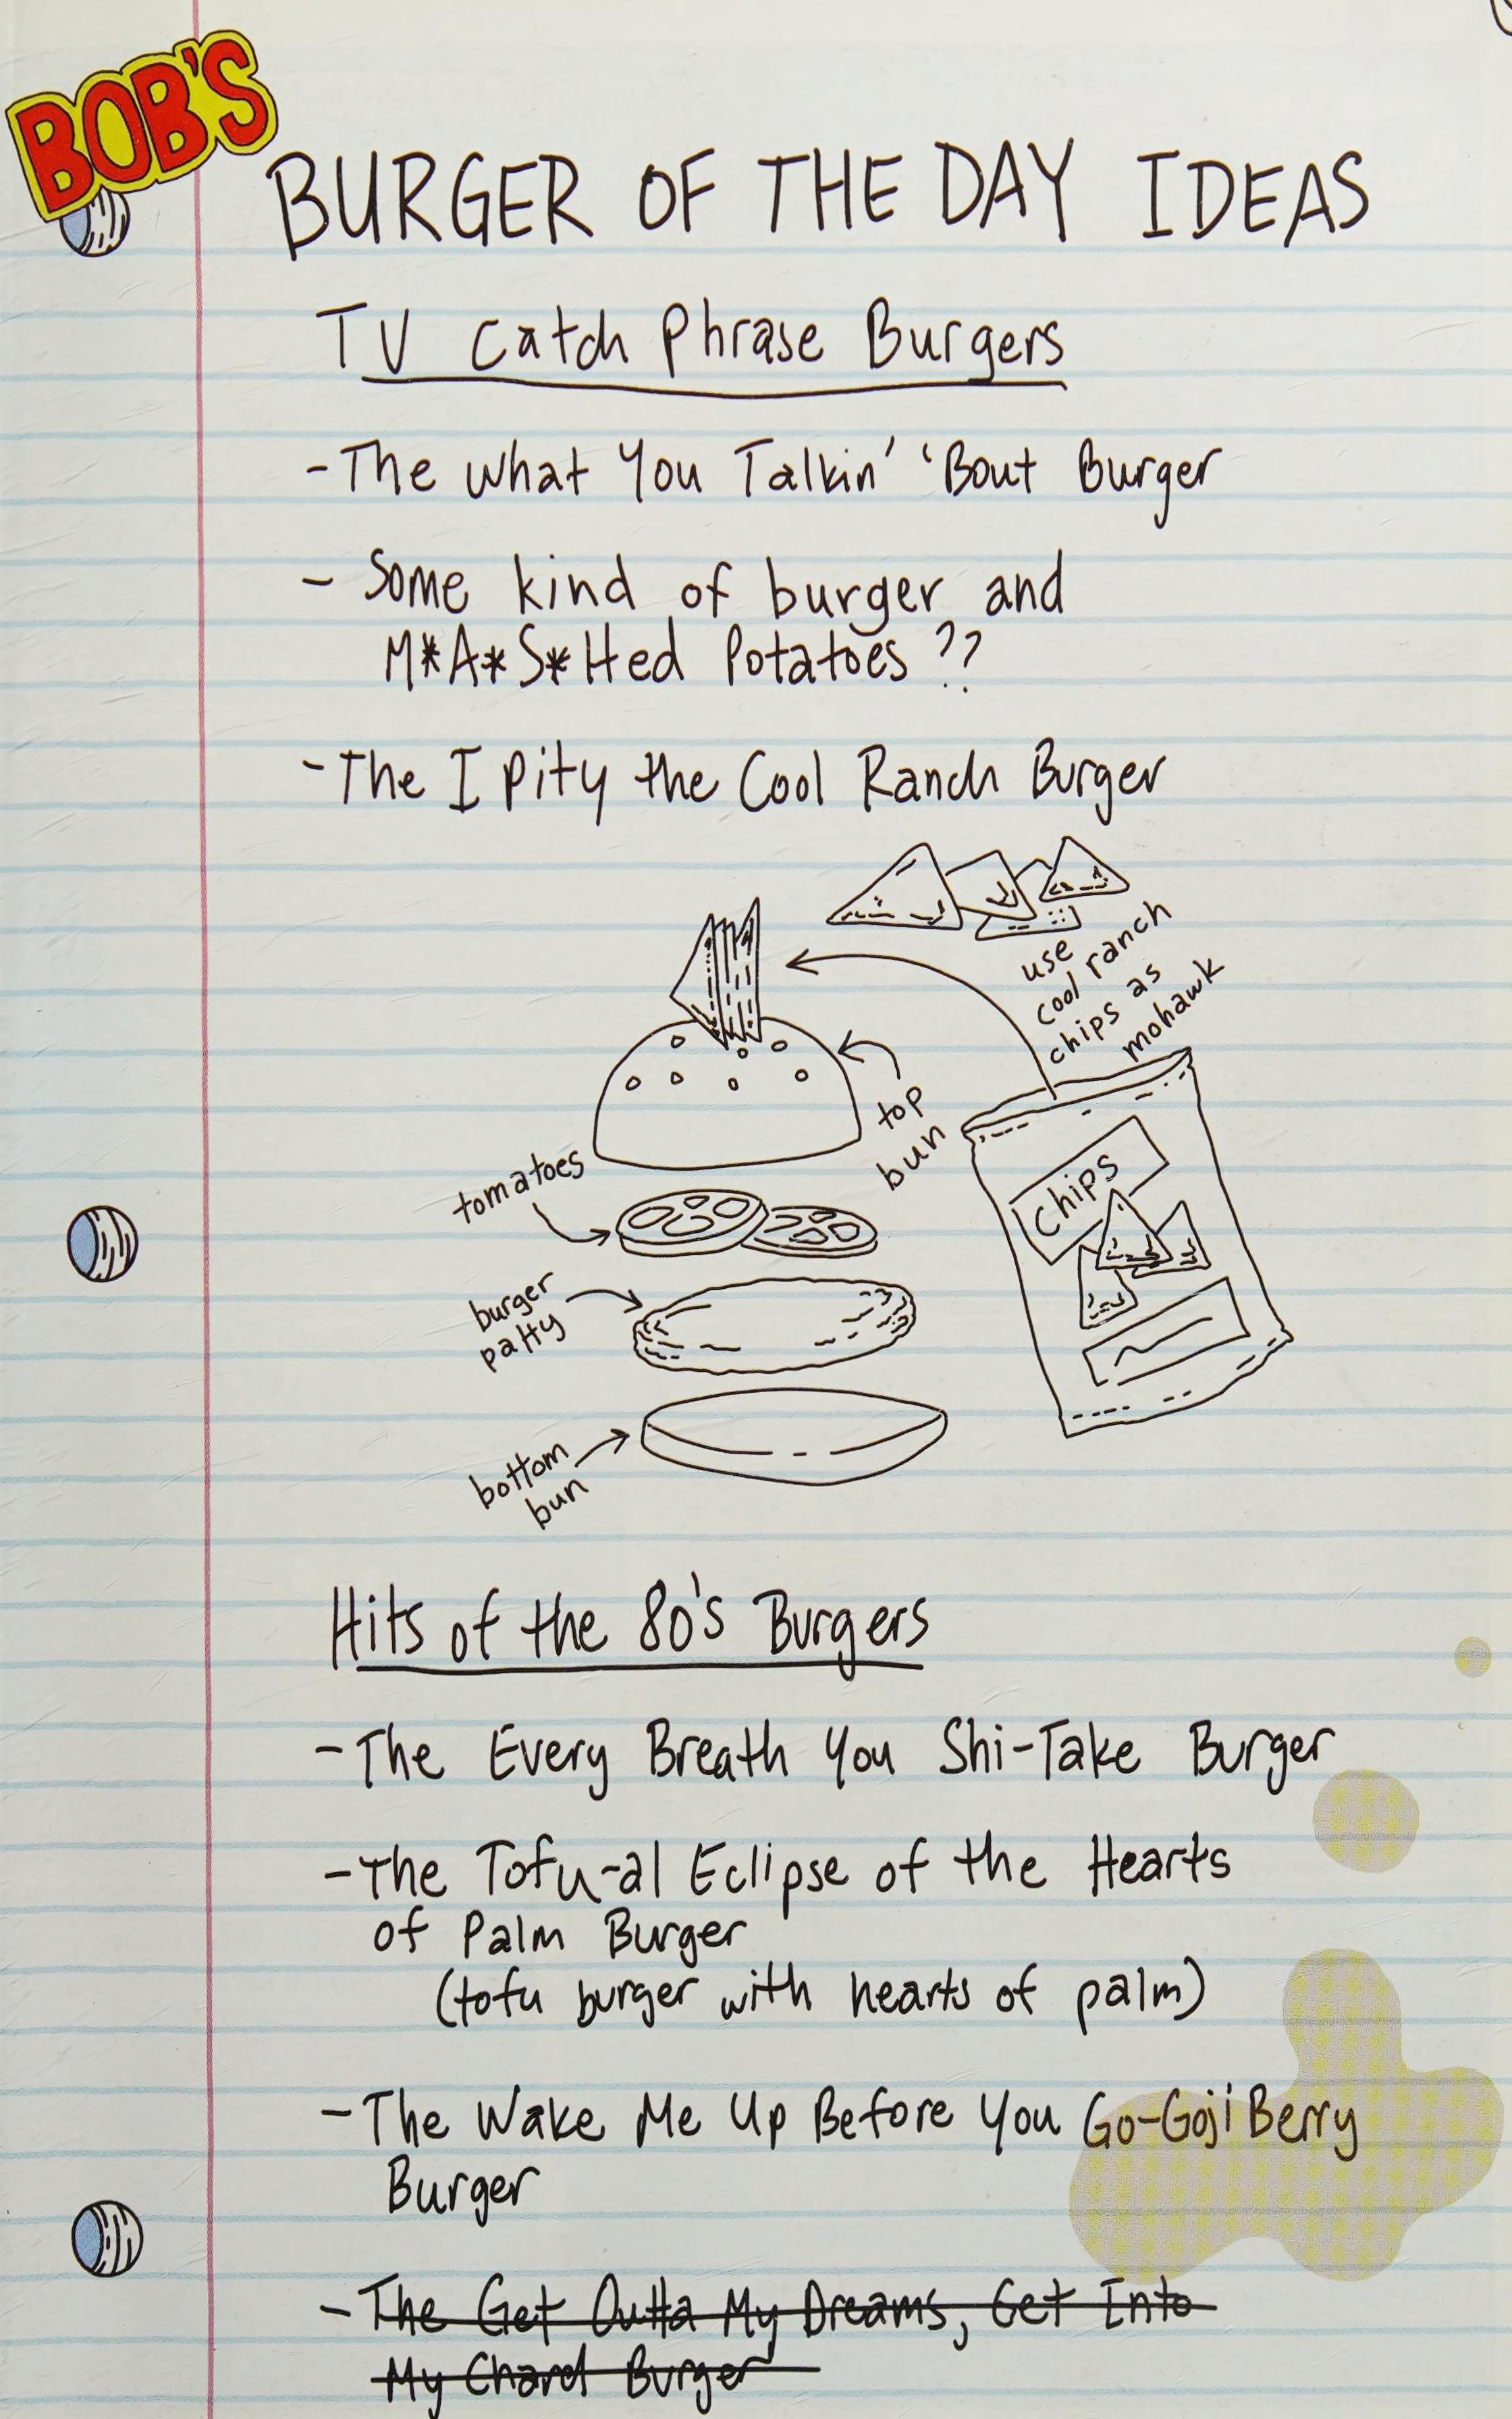 BOB'S
BURGER OF THE DAY IDEAS
TV Catch Phrase Burgers
- The What You Talkin' 'Bout Burger
- Some kind of burger and
M*A*S*Hed Potatoes ??
- The I Pity the Cool Ranch Burger
use
cool ranch
chips as
mohawk
top
bun
Chips
tomatoes
burger
patty
bottom
bun
Hits of the 80's Burgers
- The Every Breath You Shi-Take Burger
- The Tofu-al Eclipse of the Hearts
of Palm Burger
(tofu burger with hearts of palm)
- The Wake Me Up Before You Go-Goji Berry
Burger
- The Get Outta My Dreams, Get Into
My Chard Burger